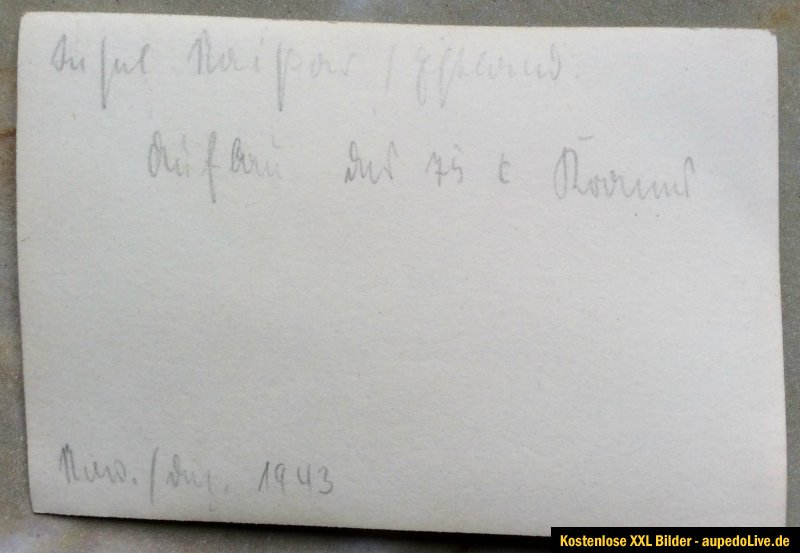 Insel Naißar / Estland.
Aufbau des 75 t Kranes
Nov./Dez. 1943
Kostenlose XXL Bilder - aupedoLive.de